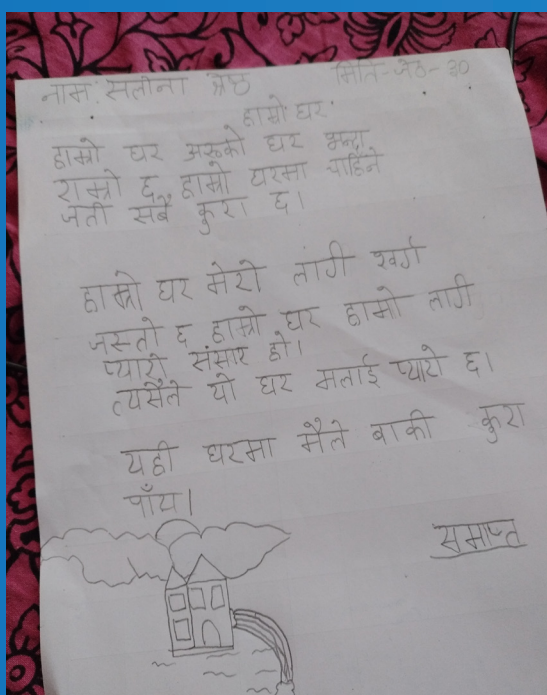 नाम. सलीना श्रेष्ठ मिति-जेठ-३०
हाम्रो घर
हाम्रो घर अरुको घर भन्दा
राम्रो छ हाम्रो घरमा चाहिने
जती सबै कुरा छ।
हाम्रो घर मेरो लागी स्वर्ग
जस्तो छ हाम्रो घर हाम्रो लागी
प्यारो संसार हो।
त्यसैले यो घर मलाई प्यारो छ।
यही घरमा मैले बाकी कुरा
पाँय।
समाप्त